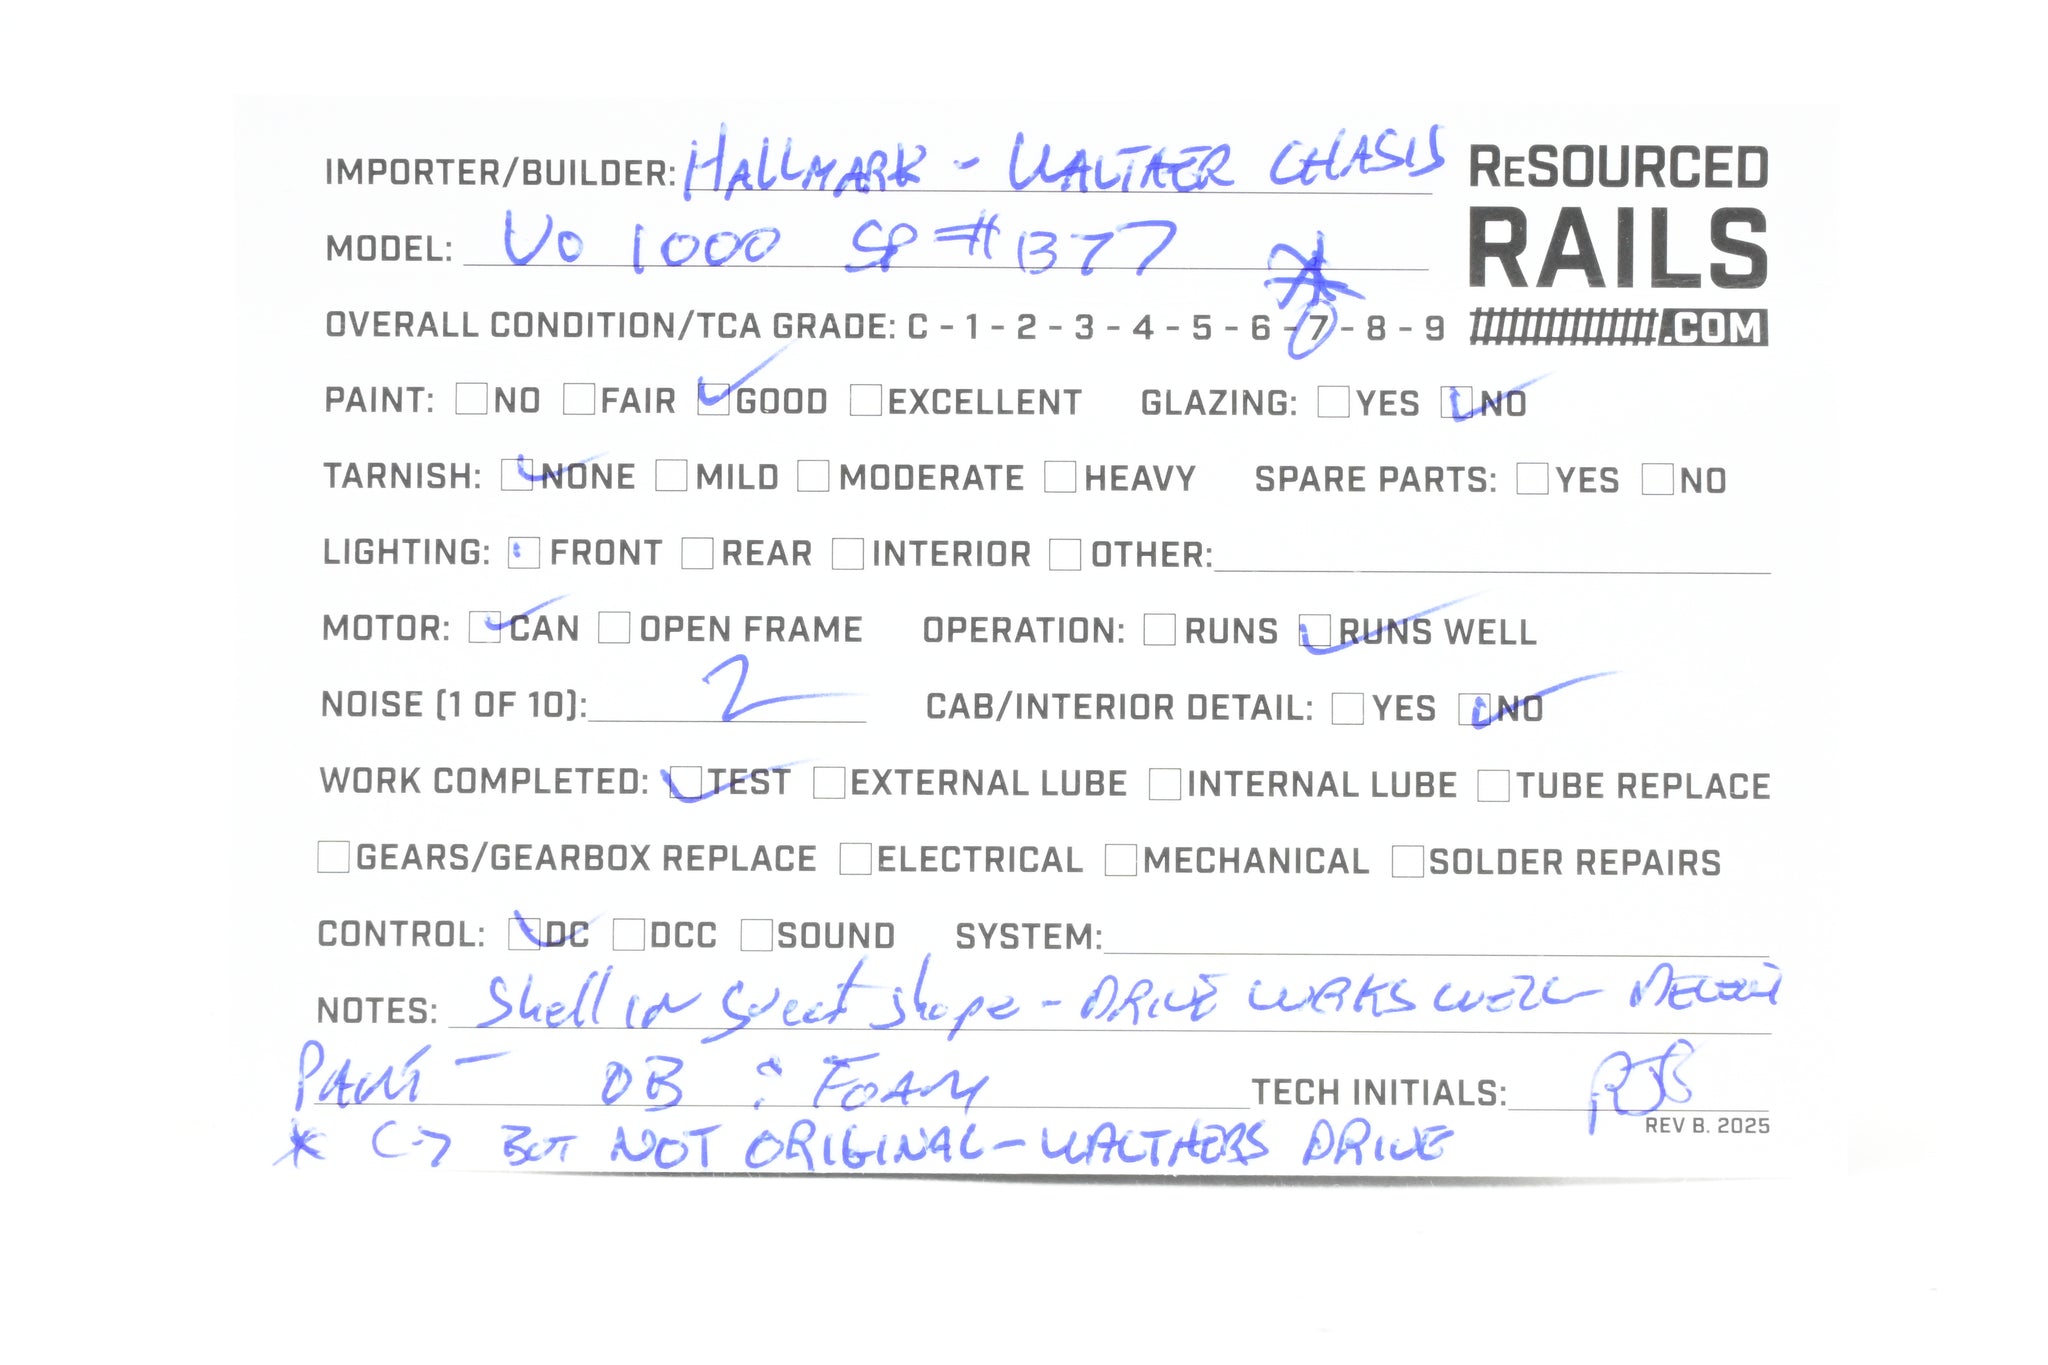 IMPORTER/BUILDER: HALLMARK - WALTHER CHASIS
RESOURCED
RAILS
.COM
MODEL: VO 1000 SP #1377 *
OVERALL CONDITION/TCA GRADE: C - 1 - 2 - 3 - 4 - 5 - 6 - 7 - 8 - 9
PAINT: NO FAIR GOOD EXCELLENT GLAZING: YES NO
TARNISH: NONE MILD MODERATE HEAVY SPARE PARTS: YES NO
LIGHTING: FRONT REAR INTERIOR OTHER:
MOTOR: CAN OPEN FRAME OPERATION: RUNS RUNS WELL
NOISE (1 OF 10): 2 CAB/INTERIOR DETAIL: YES NO
WORK COMPLETED: TEST EXTERNAL LUBE INTERNAL LUBE TUBE REPLACE
GEARS/GEARBOX REPLACE ELECTRICAL MECHANICAL SOLDER REPAIRS
CONTROL: DC DCC SOUND SYSTEM:
NOTES: Shell in great shape - DRIVE WORKS WELL
PAINT - OB & FOAM TECH INITIALS: RJB
REV B. 2025
* C-7 BUT NOT ORIGINAL - WALTHERS DRIVE